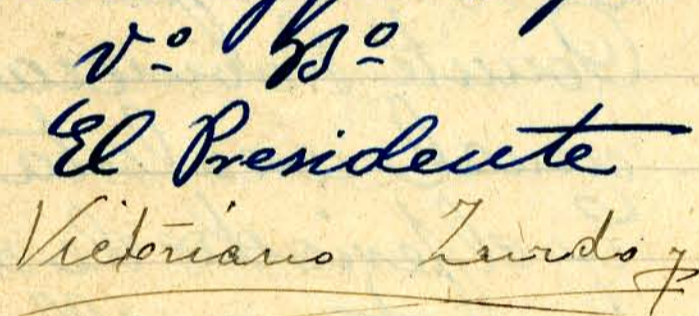 Vº Bº
El Presidente
Victoriano